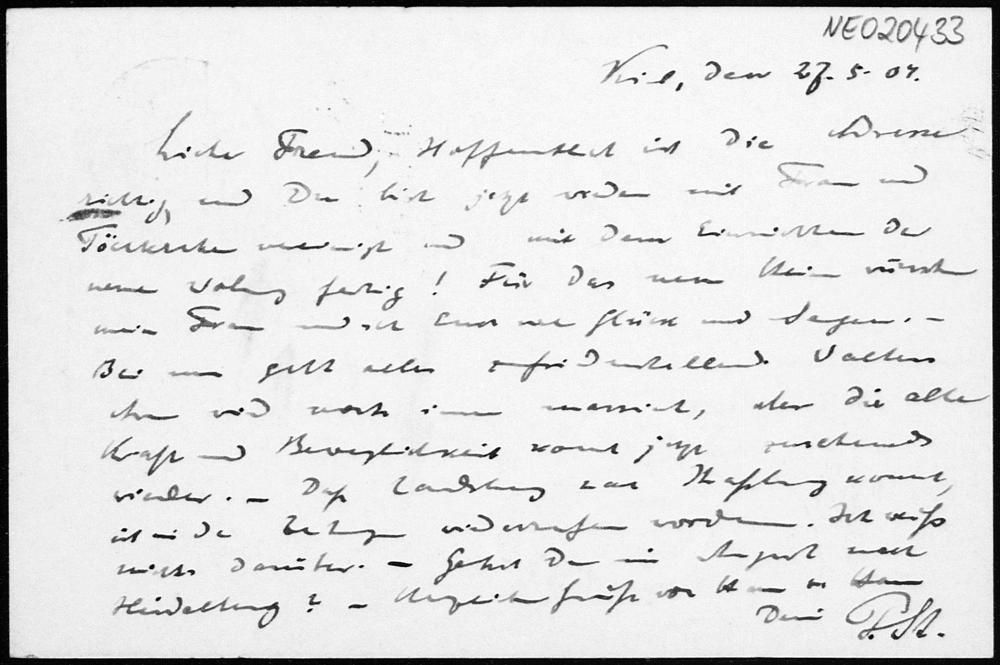 NEO20433
Kiel, den 27. 5. 04.
Lieber Freund, Hoffentlich ist die Adresse
richtig, und Du bist jetzt wieder mit Frau und
Töchterchen vereinigt und mit dem Einrichten der
neuen Wohnung fertig! Für das neue Heim wünschen
meine Frau und ich Euch Glück und Segen. –
Bei uns geht alles zufriedenstellend. Walters
Arm wird noch immer massirt, aber die alte
Kraft und Beweglichkeit kommt jetzt zusehends
wieder. – Daß Landsberg nach Straßburg kommt,
ist in den Zeitungen widerrufen worden. Ich weiß
nichts darüber. – Gehst Du im August nach
Heidelberg? – Herzliche Grüße von Haus zu Haus
Dein P. St.